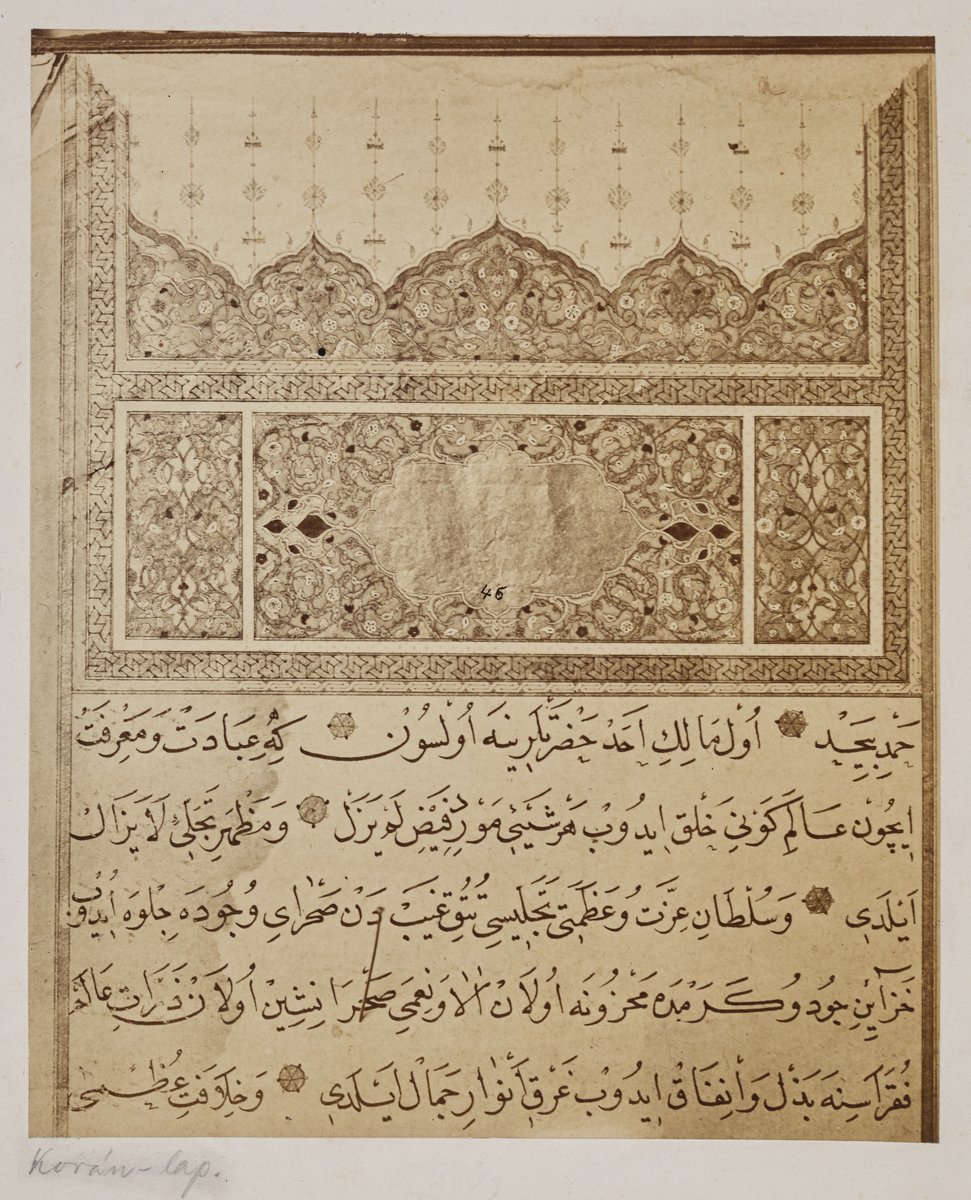 46
حَمْدِ بِيحَدْ اُوْل مَالِكِ اَحَدْ حَضْرَتْلَرِينَه اُوْلسُونْ كِه عِبَادَتْ وَمَعْرِفَتْ
اِيچُونْ عَالَمِ كَوْنِي خَلْق اِيدُوبْ هَرْ شَيْئِي مَوْرِدِ فَيْضِ لَمْ يَزَلْ وَمَظْهَرِ تَجَلِّئِ لَا يَزَالْ
اَيْلَدِي وَسُلْطَانِ عِزَّتْ وُ عَظَمَتِي تَجَلِّيسِي تُتُقِ غَيْبَ دَنْ صَحْرَايِ وُجُودَه جِلْوَه اِيدُوبْ
خَزَآيِنِ جُود وُ كَرَمِدَه مَخْزُونَه اُولَانْ اٰلَاٰ وَنِعَمِي صَحْرَا نِشِينْ اُولَانْ ذَرَاتِ عَالَمْ
فُقَرَاسِنَه بَذْل وَاِنِفَاقْ اِيدُوبْ غَرْقِ اَنْوَارِ جَمَالْ اَيْلَدِي وَخِلَافَتِ عُظْمٰى
Korán-lap.